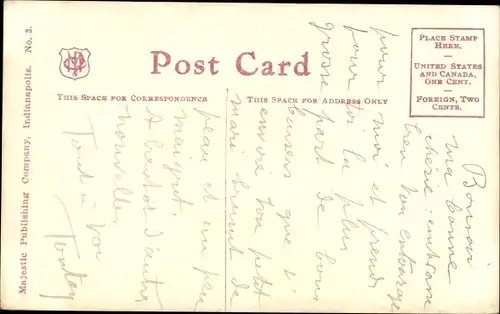 Majestic Publishing Company, Indianapolis. No. 3.
Post Card
THIS SPACE FOR CORRESPONDENCE
THIS SPACE FOR ADDRESS ONLY
PLACE STAMP
HERE.
UNITED STATES
AND CANADA,
ONE CENT.
FOREIGN, TWO
CENTS.
Bonsoir
ma bonne
chérie: embrasse
bien ton entourage
pour moi et prends
pour toi la plus
grosse part de bons
baisers que t'
envoie ton petit
mari bruni de
peau et un peu
maigri.
A bientôt d'autres
nouvelles
Tout à toi